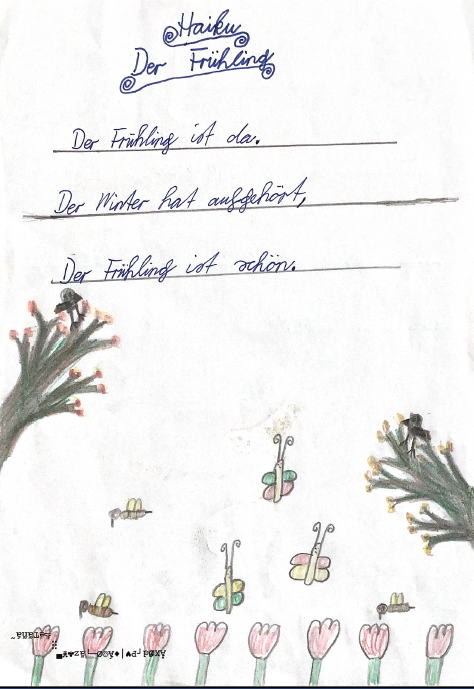 Haiku
Der Frühling
Der Frühling ist da.
Der Winter hat aufgehört,
Der Frühling ist schön.